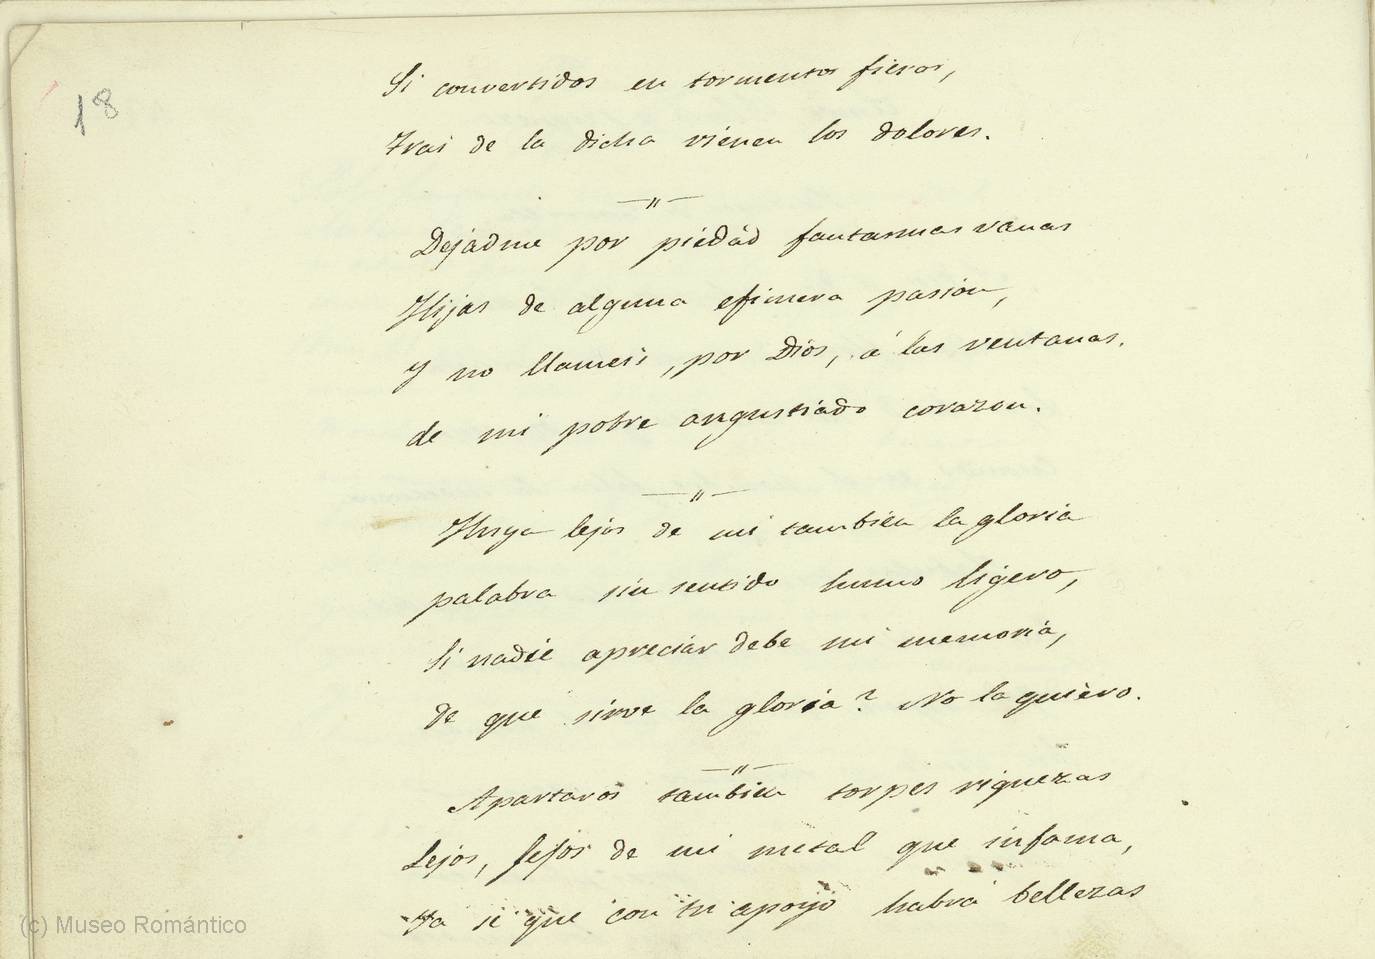 18
Si convertidos en tormentos fieros,
tras de la dicha vienen los dolores.
Dejadme por piedad fantasmas vanas
Hijas de alguna efimera pasion,
y no llameis, por Dios, á las ventanas.
de mi pobre angustiado corazon.
Huya lejos de mi tambien la gloria
palabra sin sentido humo ligero,
Si nadie apreciar debe mi memoria,
de que sirve la gloria? No la quiero.
Apartaros tambien torpes riquezas
Lejos, lejos de mi metal que infama,
Ya sé que con tu apoyo habrá bellezas
(c) Museo Romántico